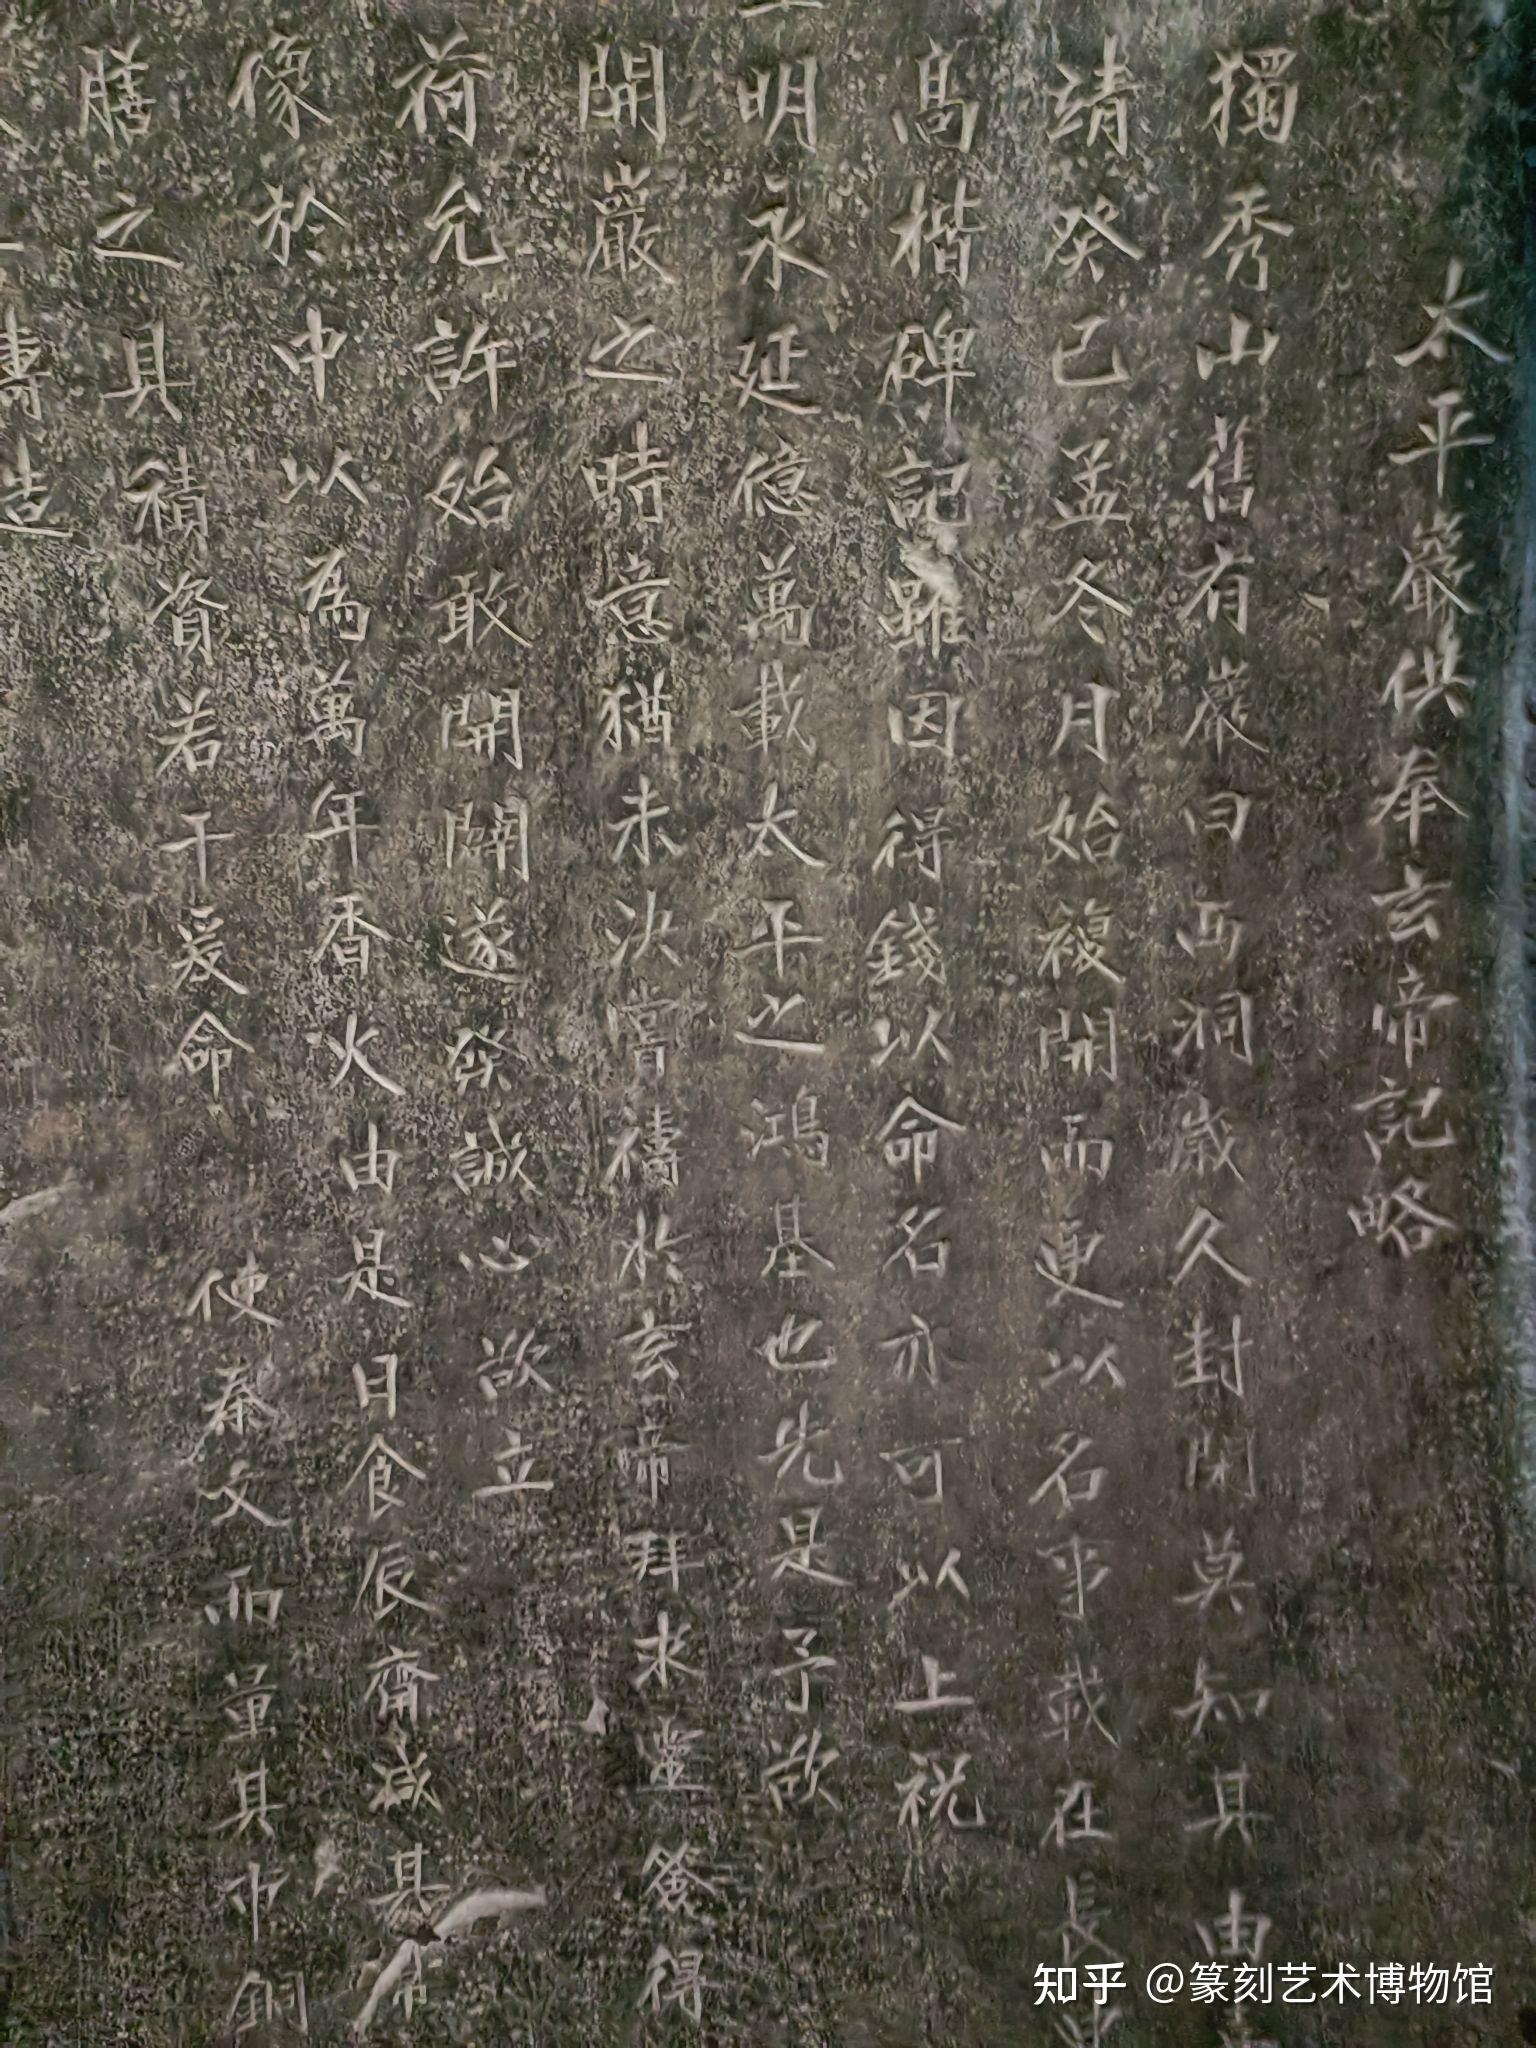 太平巖供奉玄帝記略
獨秀山舊有巖曰西洞歲久封閉莫知其由
靖癸巳孟冬月始複開而更以名事載在長
高楷碑記雖因得錢以命名亦可以上祝
明永延億萬載太平之鴻基也先是予欲
開巖之時意猶未決嘗禱於玄帝拜求聖答得
荷允許始敢開闢遂發誠心欲立
像於中以為萬年香火由是日食辰齋減其
膳之具積資若干爰命 使秦文而量其中銅
知乎 @篆刻艺术博物馆